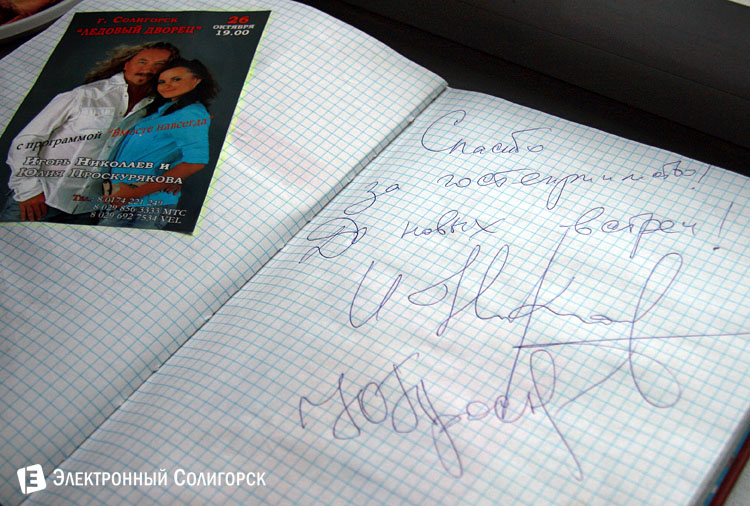 г. Солигорск
"ЛЕДОВЫЙ ДВОРЕЦ"
26
ОКТЯБРЯ
19.00
с программой "Вместе навсегда"
Игорь Николаев и
Юлия Проскурякова
Тел. 8 0174 221 249
8 029 856 3333 МТС
8 029 692 7534 VEL
Спасибо
за гостеприимство!
До новых встреч!
И Николаев
Ю Проск
Электронный Солигорск